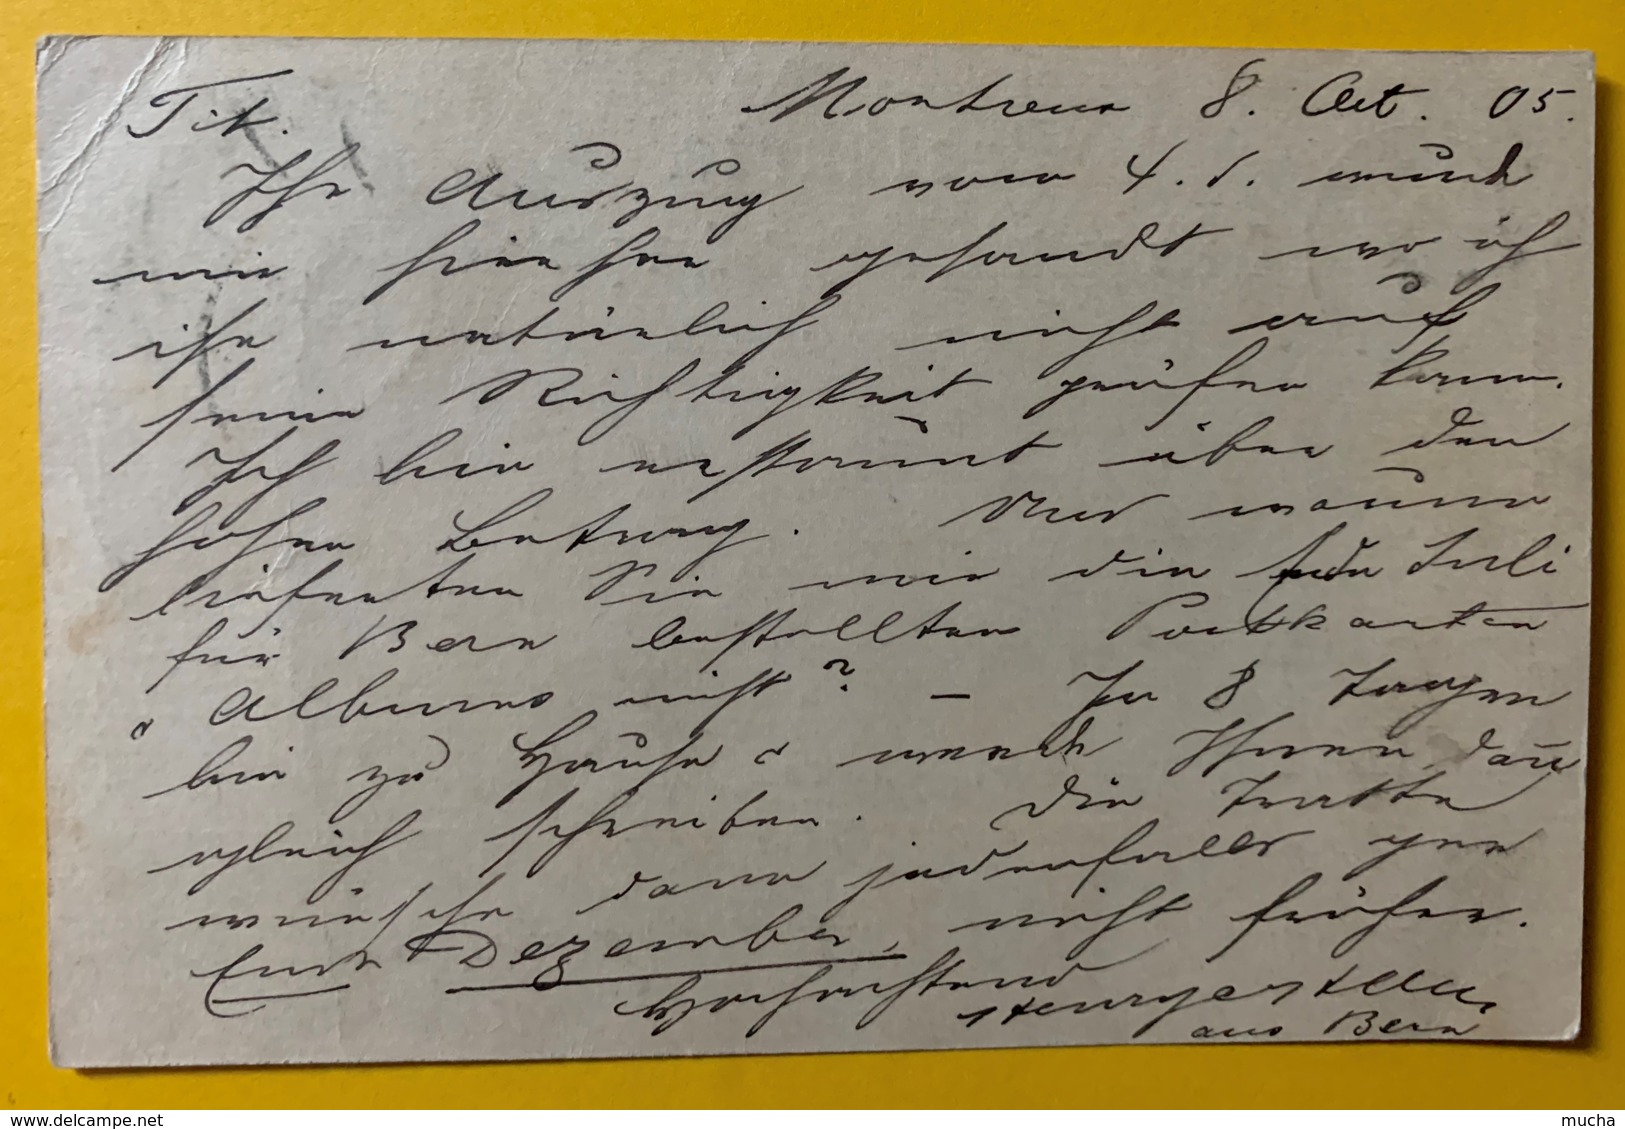 Tit. Montreux 8. Oct. 05.
Ihr Auszug vom 4. d. wurde
mir hierher gesandt wo ich
ihn natürlich nicht auf
seine Richtigkeit prüfen kann.
Ich bin erstaunt über den
hohen Betrag. Und warum
lieferten Sie mir die Ende Juli
für Bern bestellten Postkarten
Albums nicht? – In 8 Tagen
bin zu Hause & werde Ihnen dann
gleich schreiben. Die Tratte
wünsche dann jedenfalls per
Ende Dezember, nicht früher.
Hochachtend
aus Bern
mucha